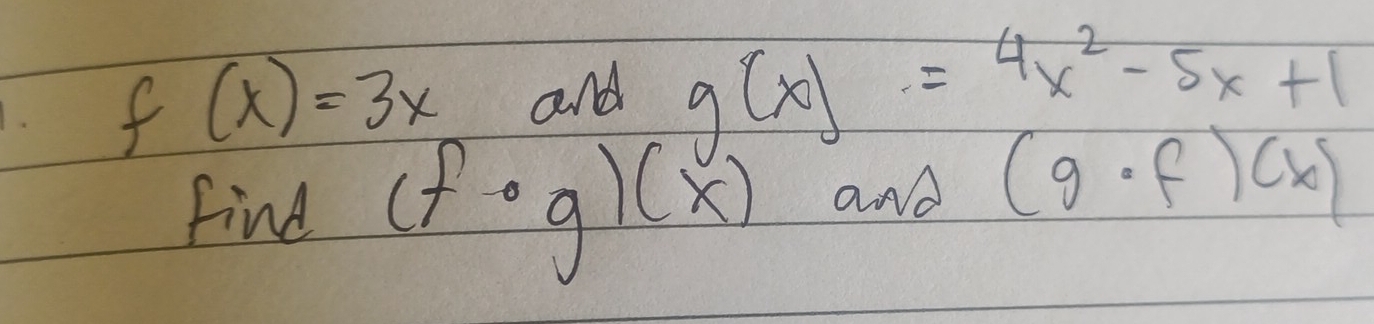 1. f(x) = 3x and g(x) = 4x² - 5x + 1
find (f ∘ g)(x) and (g ∘ f)(x)